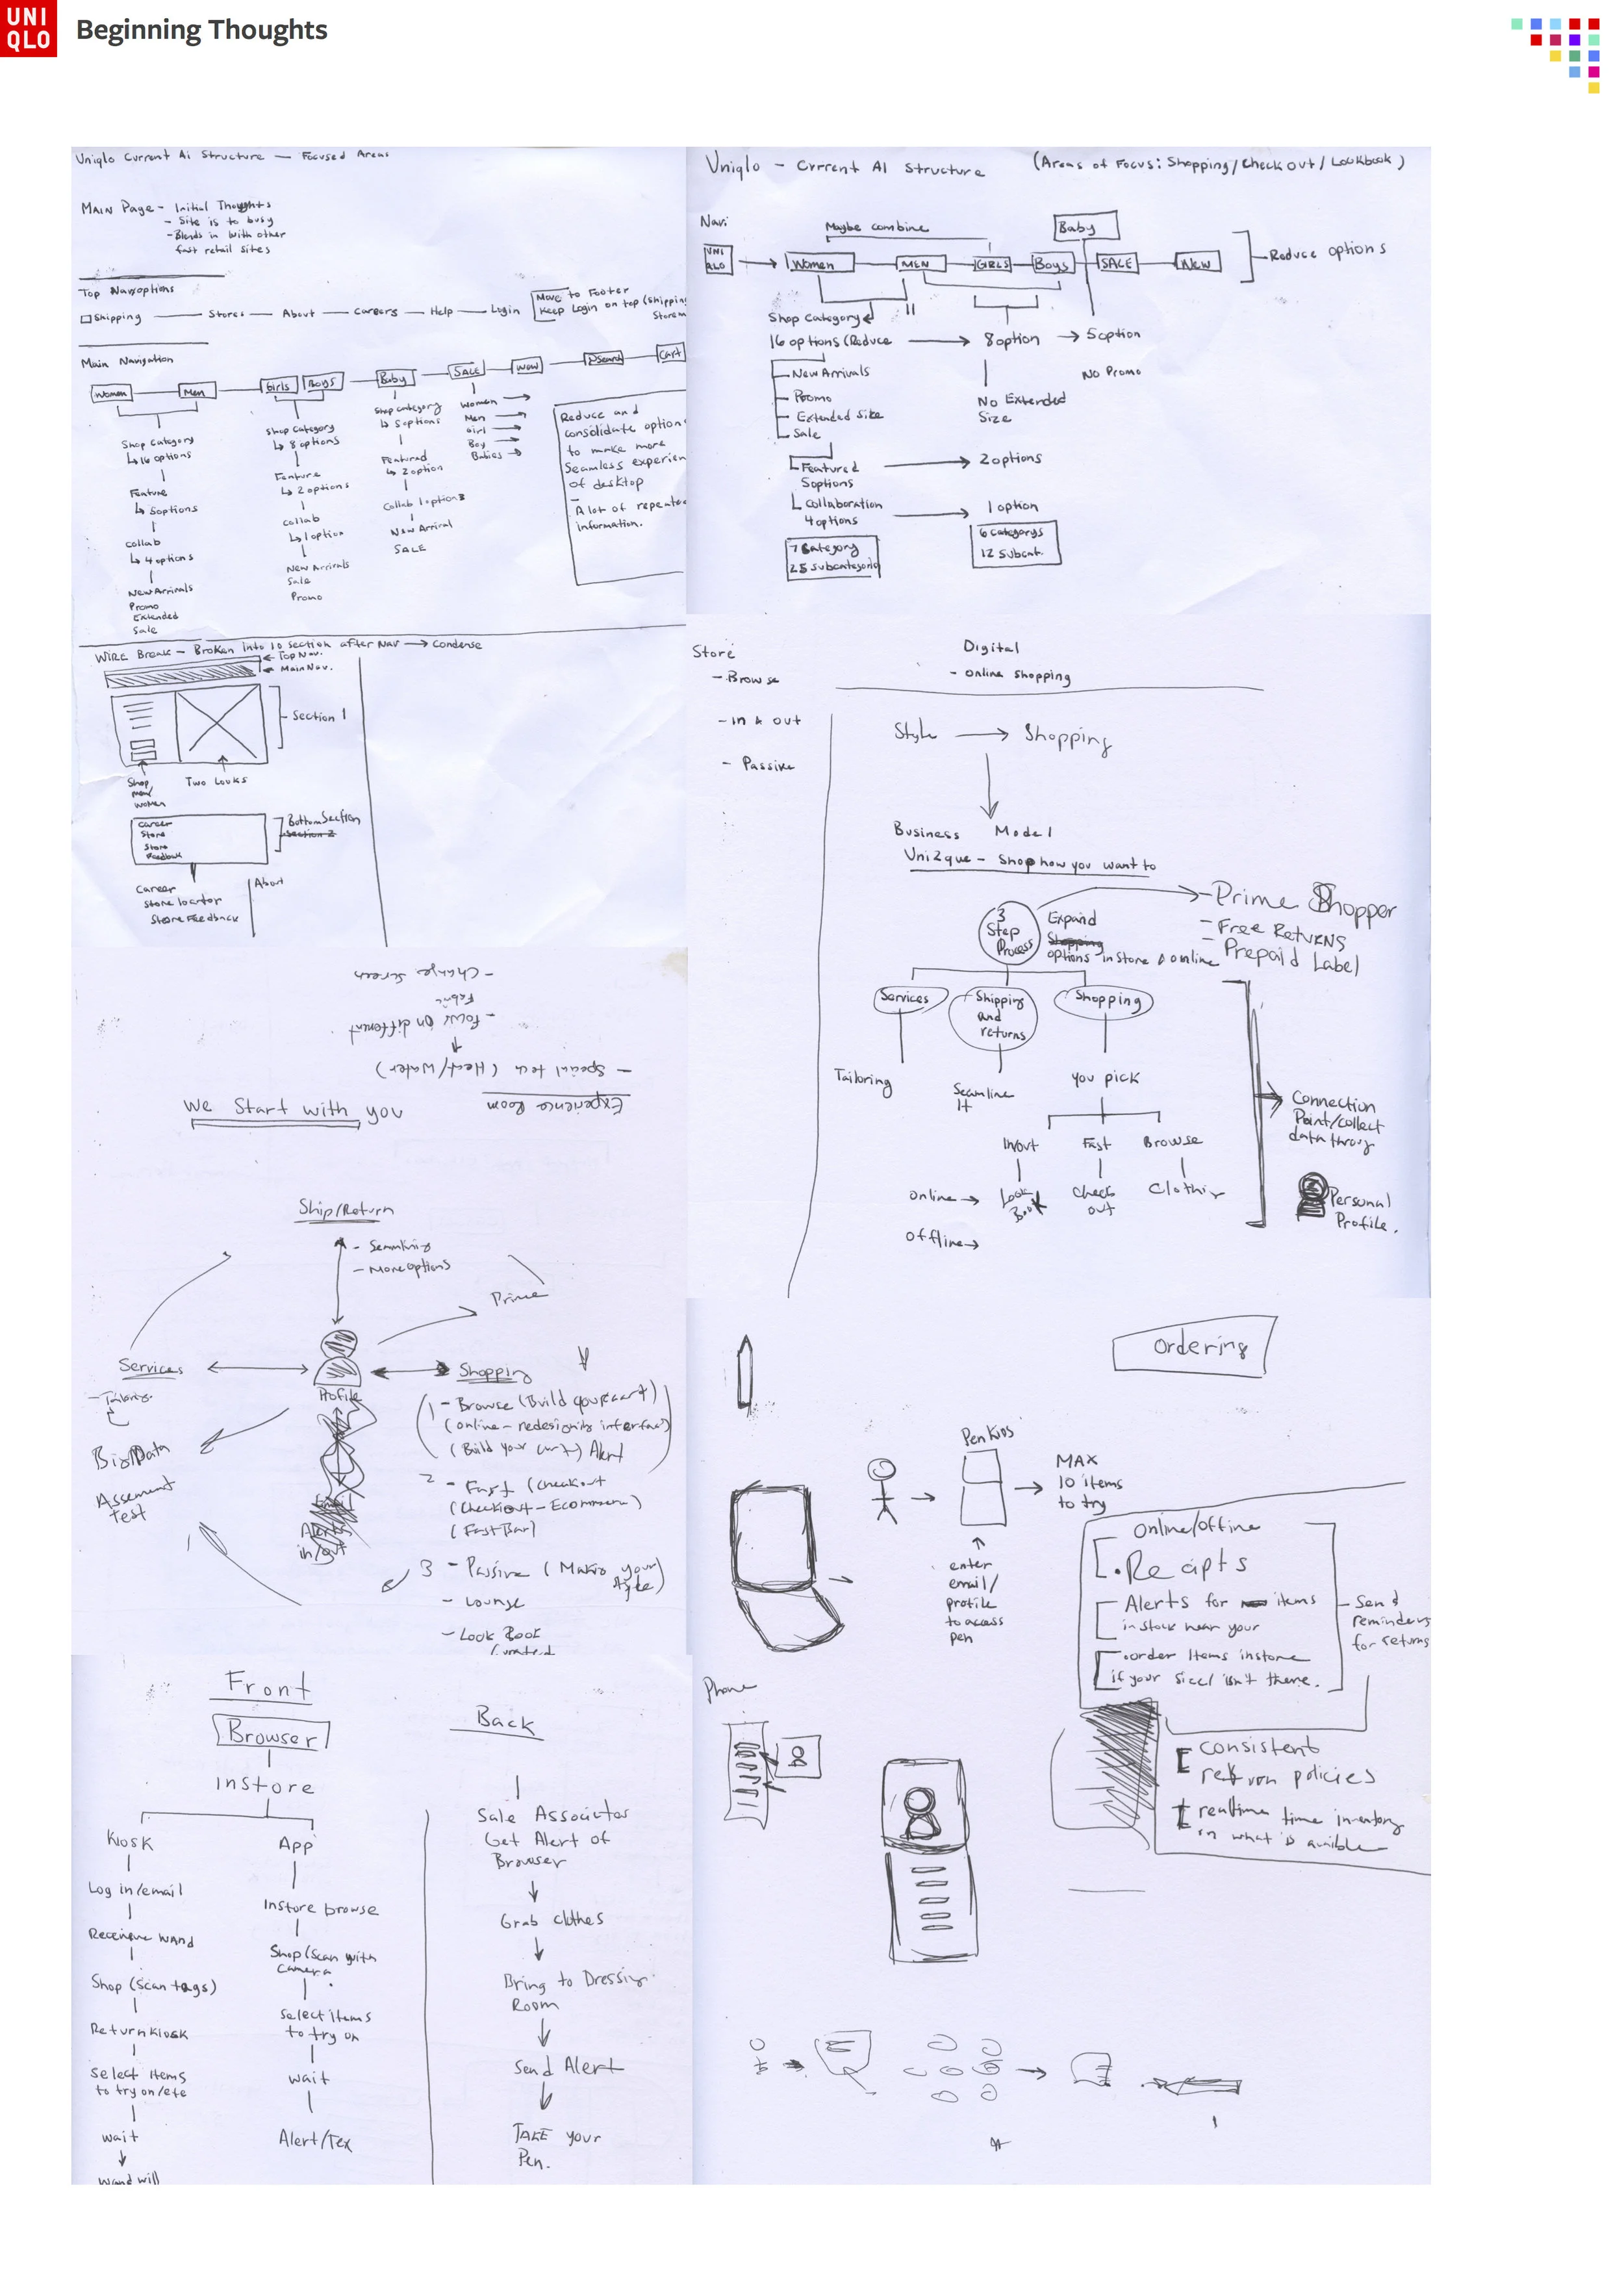 UNI
QLO
Beginning Thoughts
Uniqlo Current Ai Structure — Focused Areas
Main Page - Initial Thoughts
- Site is to busy
- Blends in with other
fast retail sites
Top Nav options
Shipping — Stores — About — Careers — Help — Login
Move to Footer
Keep Login on top (Shipping
Store
Main Navigation
Women Men Girls Boys Baby SALE New Search Cart
Shop Category
↳ 16 options
Feature
↳ 5options
collab
↳ 4 options
New Arrivals
Promo
Extended
Sale
Shop Category
↳ 8 options
Feature
↳ 2 options
collab
↳ 1 option
New Arrivals
Sale
Promo
Shop category
↳ 5options
Featured
↳ 2option
Collab 1 option
New Arrival
SALE
Women →
Men →
Girl →
Boy →
Babies →
Reduce and
consolidate option
to make more
Seamless experien
of desktop
- A lot of repeated
information.
Wire Break - Broken into 10 section after Nav → Condense
← Top Nav.
← Main Nav.
Section 1
Shop
men/
women
Two Looks
Career
Store
Store
Feedback
Bottom Section
Section 2
Career
Store locator
Store Feedback
About
Uniqlo - Current AI Structure (Areas of Focus: Shopping/Check out/Lookbook)
Navi
Maybe combine
Baby
UNI
QLO
→ Women MEN GIRLS Boys SALE New
Reduce options
Shop Category
16 options (Reduce → 8option → 5option
11
New Arrivals
Promo
Extended Size
Sale
No Extended
Size
No Promo
Featured
5options
→ 2options
Collaboration
4options
→ 1 option
7 Category
25 subcategorie
6 categorys
12 Subcat.
Store
- Browse
- in & out
- Passive
Digital
- online shopping
Style → Shopping
Business Model
Uni2que - Shop how you want to
3
Step
Process
Expand
Shopping
options in store & online
- Prime Shopper
- Free Returns
- Prepaid Label
Services
Shipping
and
returns
Shopping
Tailoring
Seamline
It
you pick
In/out Fast Browse
online →
Look
Book
Check
out
offline →
Connection
Point/collect
data throug
Personal
Profile.
Experience Room
- Special tech (Heat/Water)
- Focus on different
Fabric
- Change Screen
We Start with you
Ship/Return
- More options
Prime
Services
- Tailoring
Profile
Shopping
Big/Data
Assement
test
in/out
1 - Browse (Build your cart)
(online - redesigning interface)
(Build your cart) Alert
2 - Fast (Checkout
(Checkout - Ecommerce)
(Fast Bar)
3 - Passive (Making your
style)
- Lounge
- Look Book
Curated
Ordering
Pen Kios
MAX
10 items
to try
enter
email/
profile
to access
pen
Online/Offline
. Reciepts
Alerts for items
in stock near your
. order Items instore
if your size/ isn't there.
- Send
reminders
for returns
Phone
consistent
return policies
realtime time inventory
in what is avaible
Front
Browser
instore
Kiosk
Log in/email
Receieve WAnd
Shop (Scan tags)
Return Kiosk
Select Items
to try on/etc
wait
Wand will
App
Instore browse
Shop (Scan with
Camera
Select items
to try on
wait
Alert/Tex
Back
Sale Associates
Get Alert of
Browser
Grab clothes
Bring to Dressing
Room
Send Alert
TAKE your
Pen.